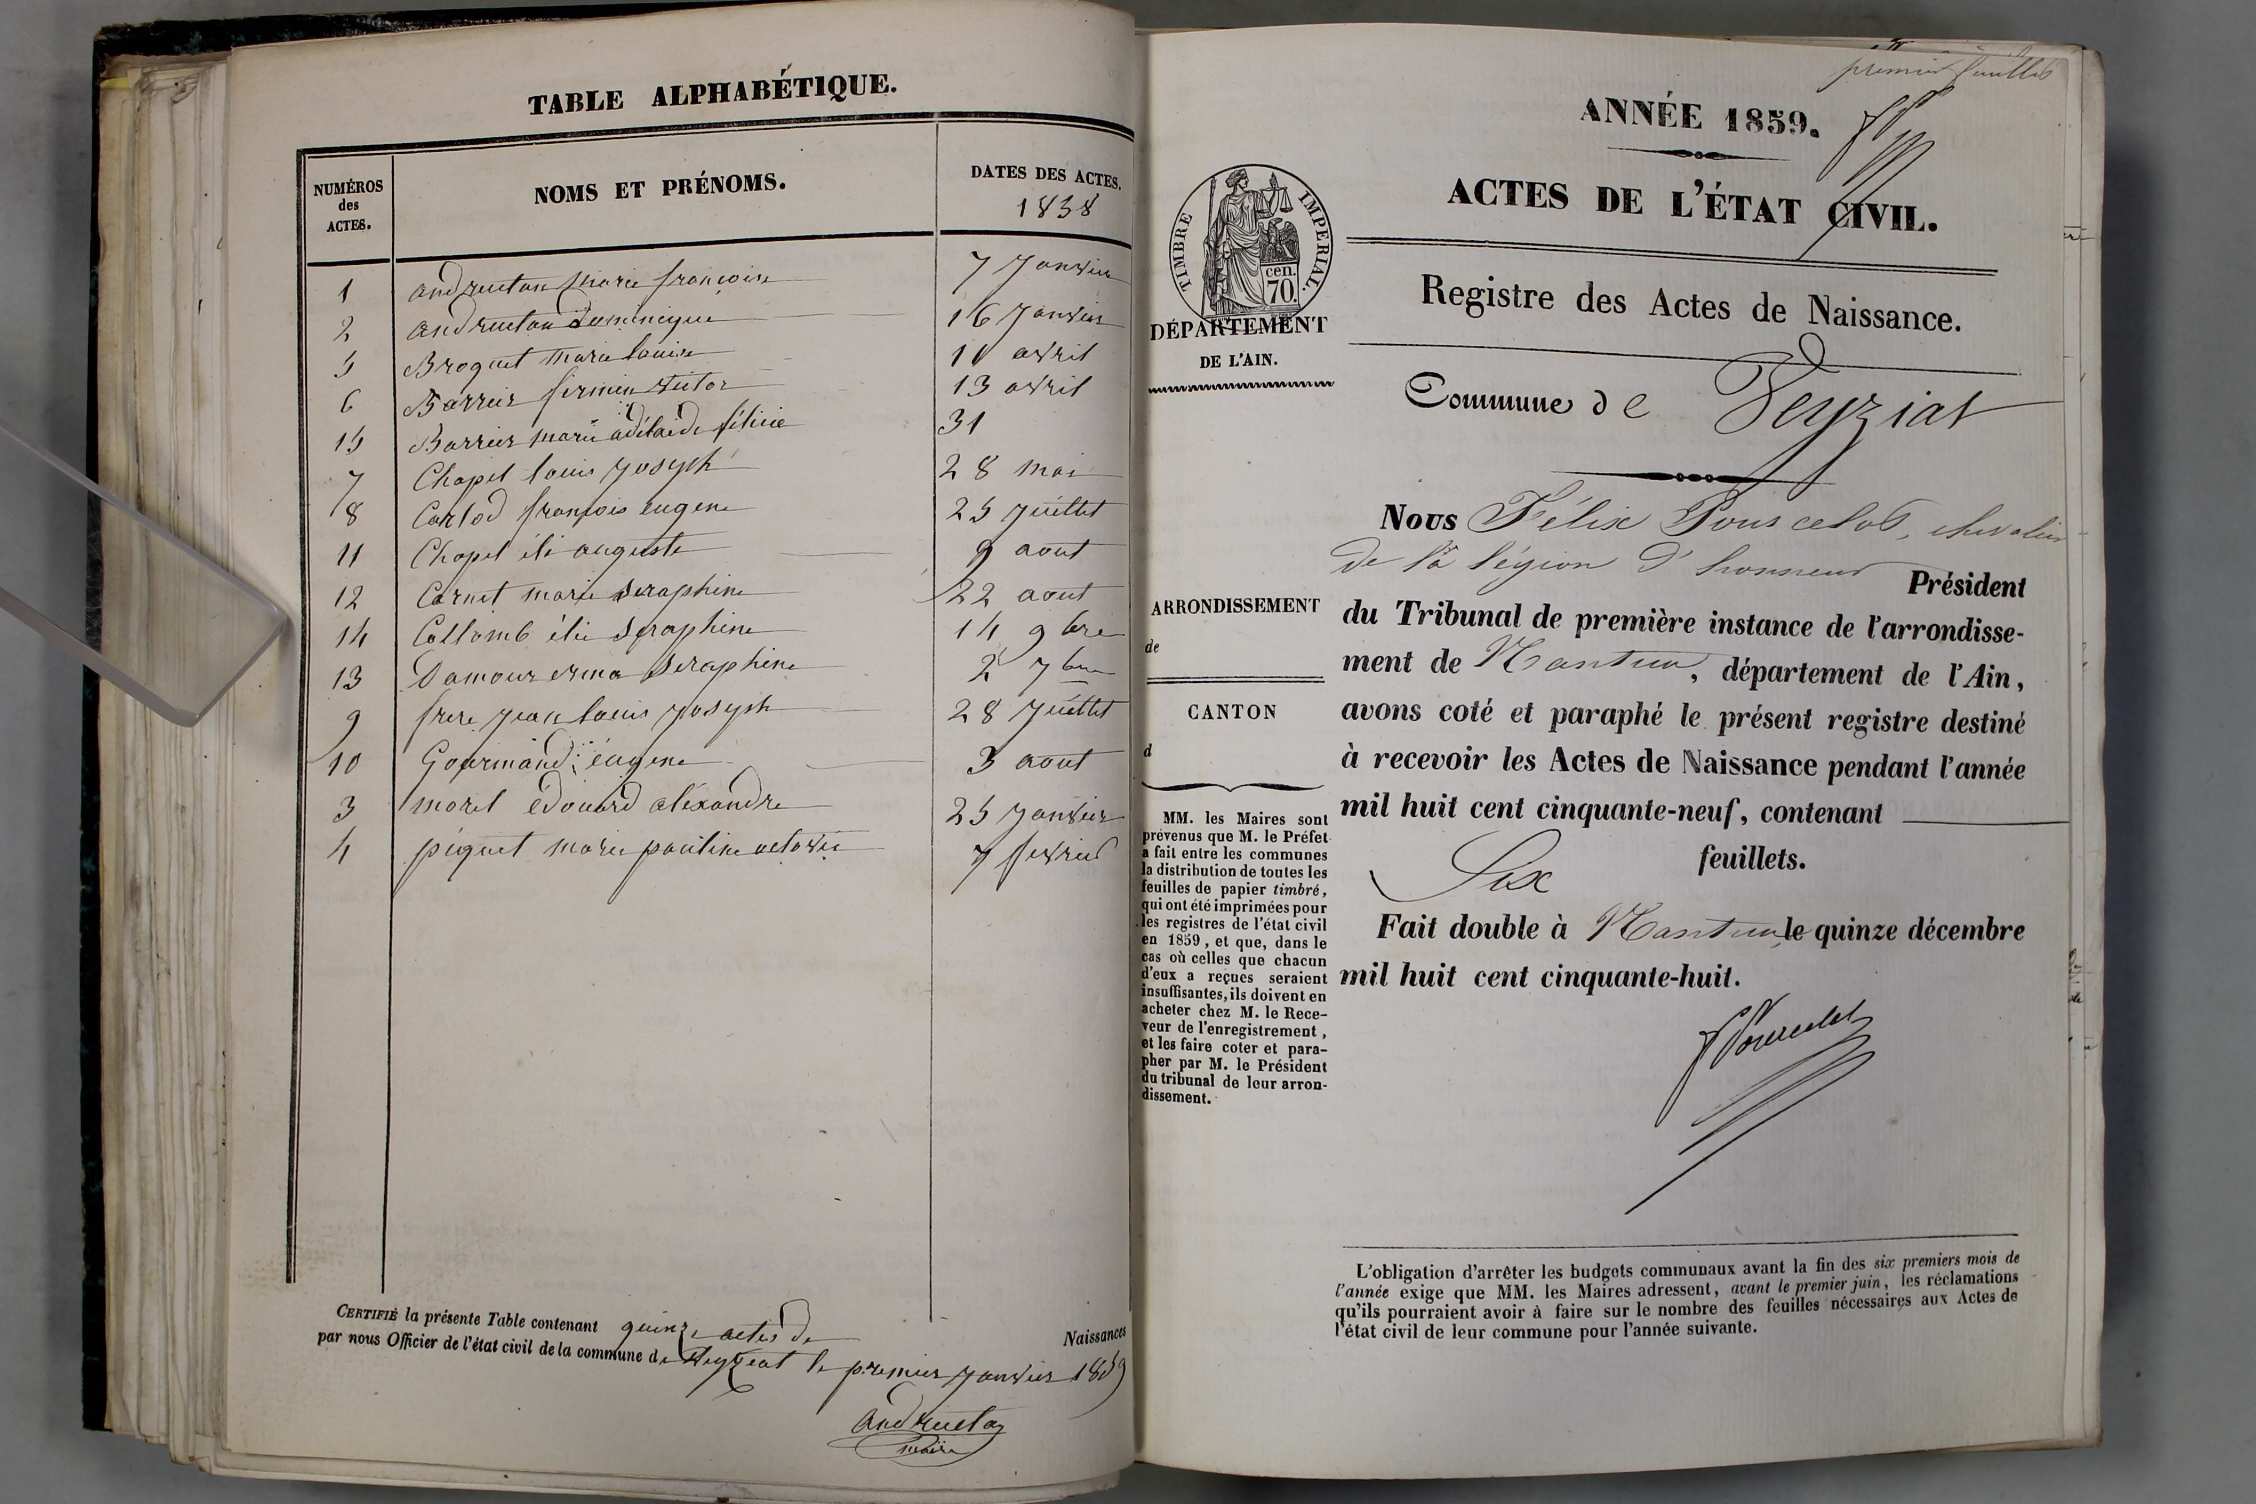 TABLE ALPHABÉTIQUE.
NUMÉROS
des
ACTES.
NOMS ET PRÉNOMS.
DATES DES ACTES.
1858
1 andruetan Marie françoise 7 Janvier
2 andruetan Dominique 16 Janvier
5 Broquet Marie louise 10 avril
6 Barrier firmin victor 13 avril
15 Barrier marie adélaide félicie 31
7 Chapel louis Joseph 28 mai
8 Carlod françois eugene 25 Juillet
11 Chapel éli auguste 9 aout
12 Carnet marie Seraphine 22 aout
14 Collomb élie Seraphine 14 9bre
13 Damour erma Seraphine 2 7bre
9 frere Jean louis Joseph 28 Juillet
10 Gourmand eugene 3 aout
3 morel édouard aléxandre 25 Janvier
4 piquet marie pauline octavie 7 fevrier
CERTIFIÉ la présente Table contenant quinze actes de Naissances
par nous Officier de l'état civil de la commune de Veyziat le premier Janvier 1859
andruetan
maire
premier feuillet
ANNÉE 1859.
ACTES DE L'ÉTAT CIVIL.
TIMBRE IMPERIAL.
cen.
70.
DÉPARTEMENT
DE L'AIN.
Registre des Actes de Naissance.
Commune de Veyziat
Nous Félix Pourcelot, chevalier
de la légion d'honneur Président
du Tribunal de première instance de l'arrondisse-
ment de Nantua, département de l'Ain,
avons coté et paraphé le présent registre destiné
à recevoir les Actes de Naissance pendant l'année
mil huit cent cinquante-neuf, contenant
Six feuillets.
Fait double à Nantua, le quinze décembre
mil huit cent cinquante-huit.
FPourcelot
ARRONDISSEMENT
de
CANTON
d
MM. les Maires sont
prévenus que M. le Préfet
a fait entre les communes
la distribution de toutes les
feuilles de papier timbré,
qui ont été imprimées pour
les registres de l'état civil
en 1859, et que, dans le
cas où celles que chacun
d'eux a reçues seraient
insuffisantes, ils doivent en
acheter chez M. le Rece-
veur de l'enregistrement,
et les faire coter et para-
pher par M. le Président
du tribunal de leur arron-
dissement.
L'obligation d'arrêter les budgets communaux avant la fin des six premiers mois de
l'année exige que MM. les Maires adressent, avant le premier juin, les réclamations
qu'ils pourraient avoir à faire sur le nombre des feuilles nécessaires aux Actes de
l'état civil de leur commune pour l'année suivante.